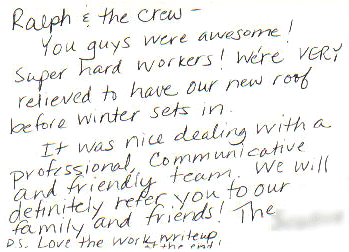 Ralph & the crew -
You guys were awesome!
Super hard workers! We're VERY
relieved to have our new roof
before winter sets in.
It was nice dealing with a
professional, communicative
and friendly team. We will
definitely refer you to our
family and friends! The
P.S. Love the work writeup
at the end!